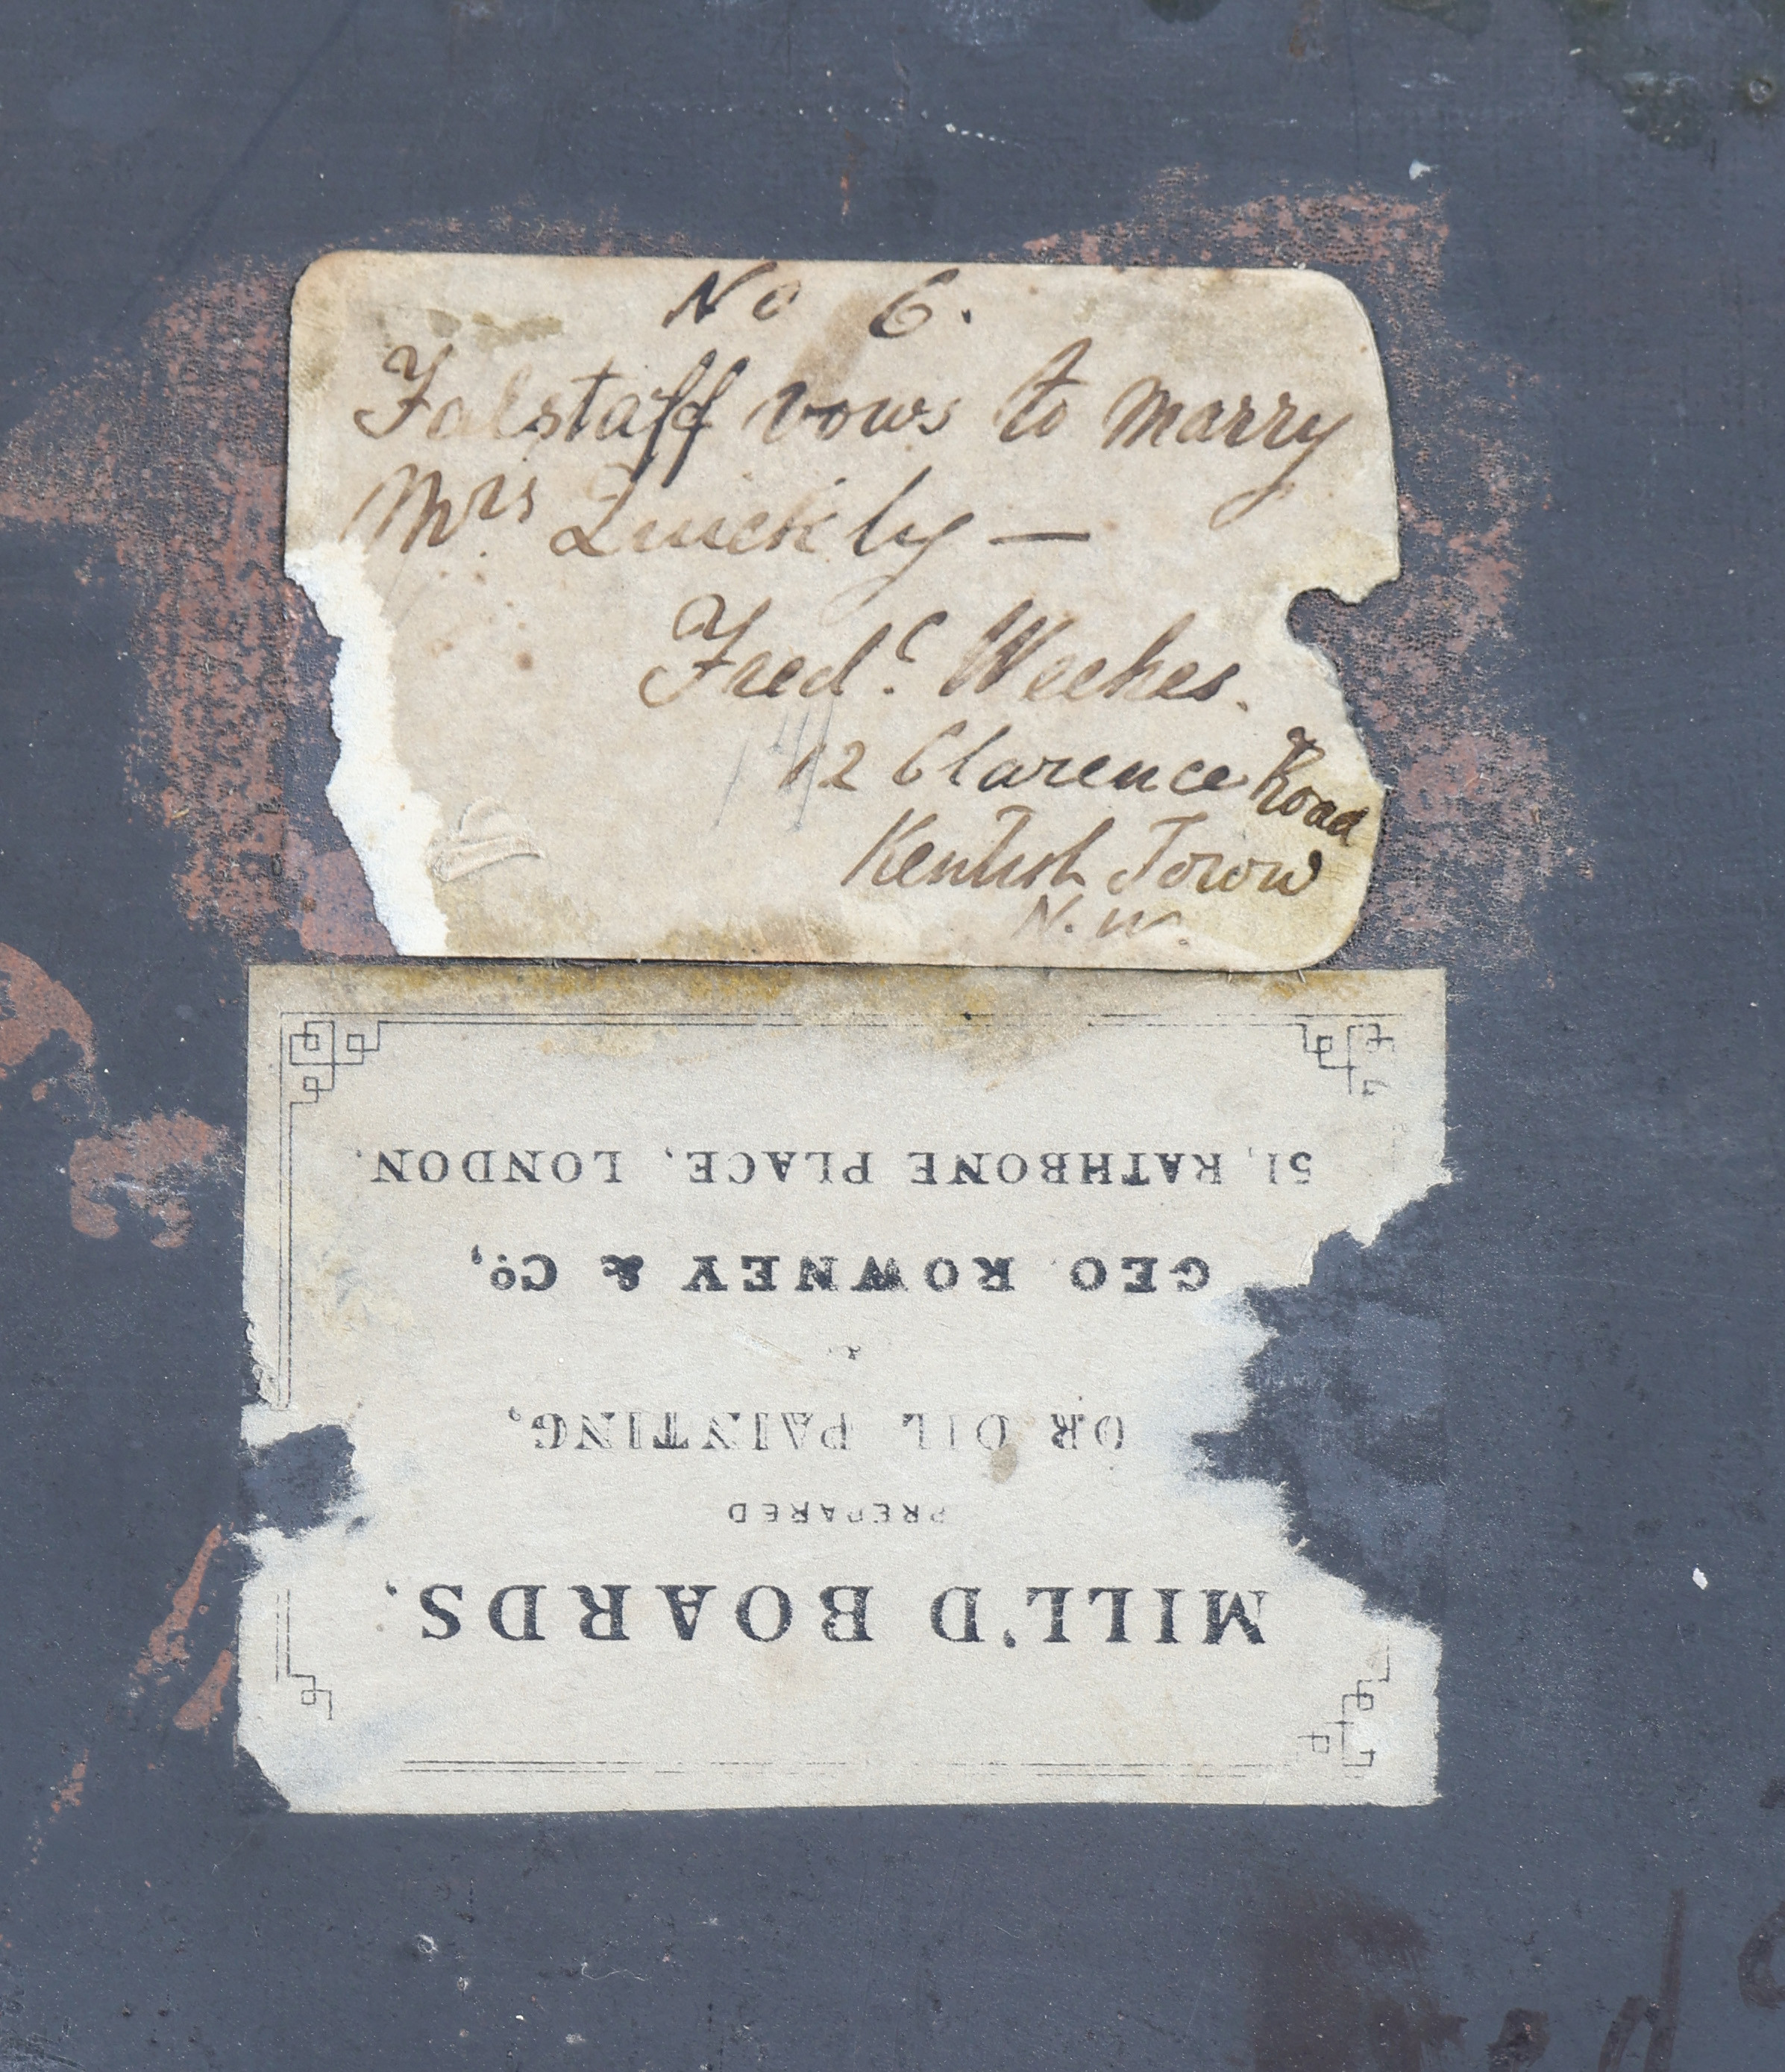 No 6.
Falstaff vows to marry
Mrs. Quickly —
Fred.c Weekes.
12 Clarence Road
Kentish Town
N.W.
MILL'D BOARDS.
PREPARED
OR OIL PAINTING,
GEO. ROWNEY & Co.,
51, RATHBONE PLACE, LONDON.